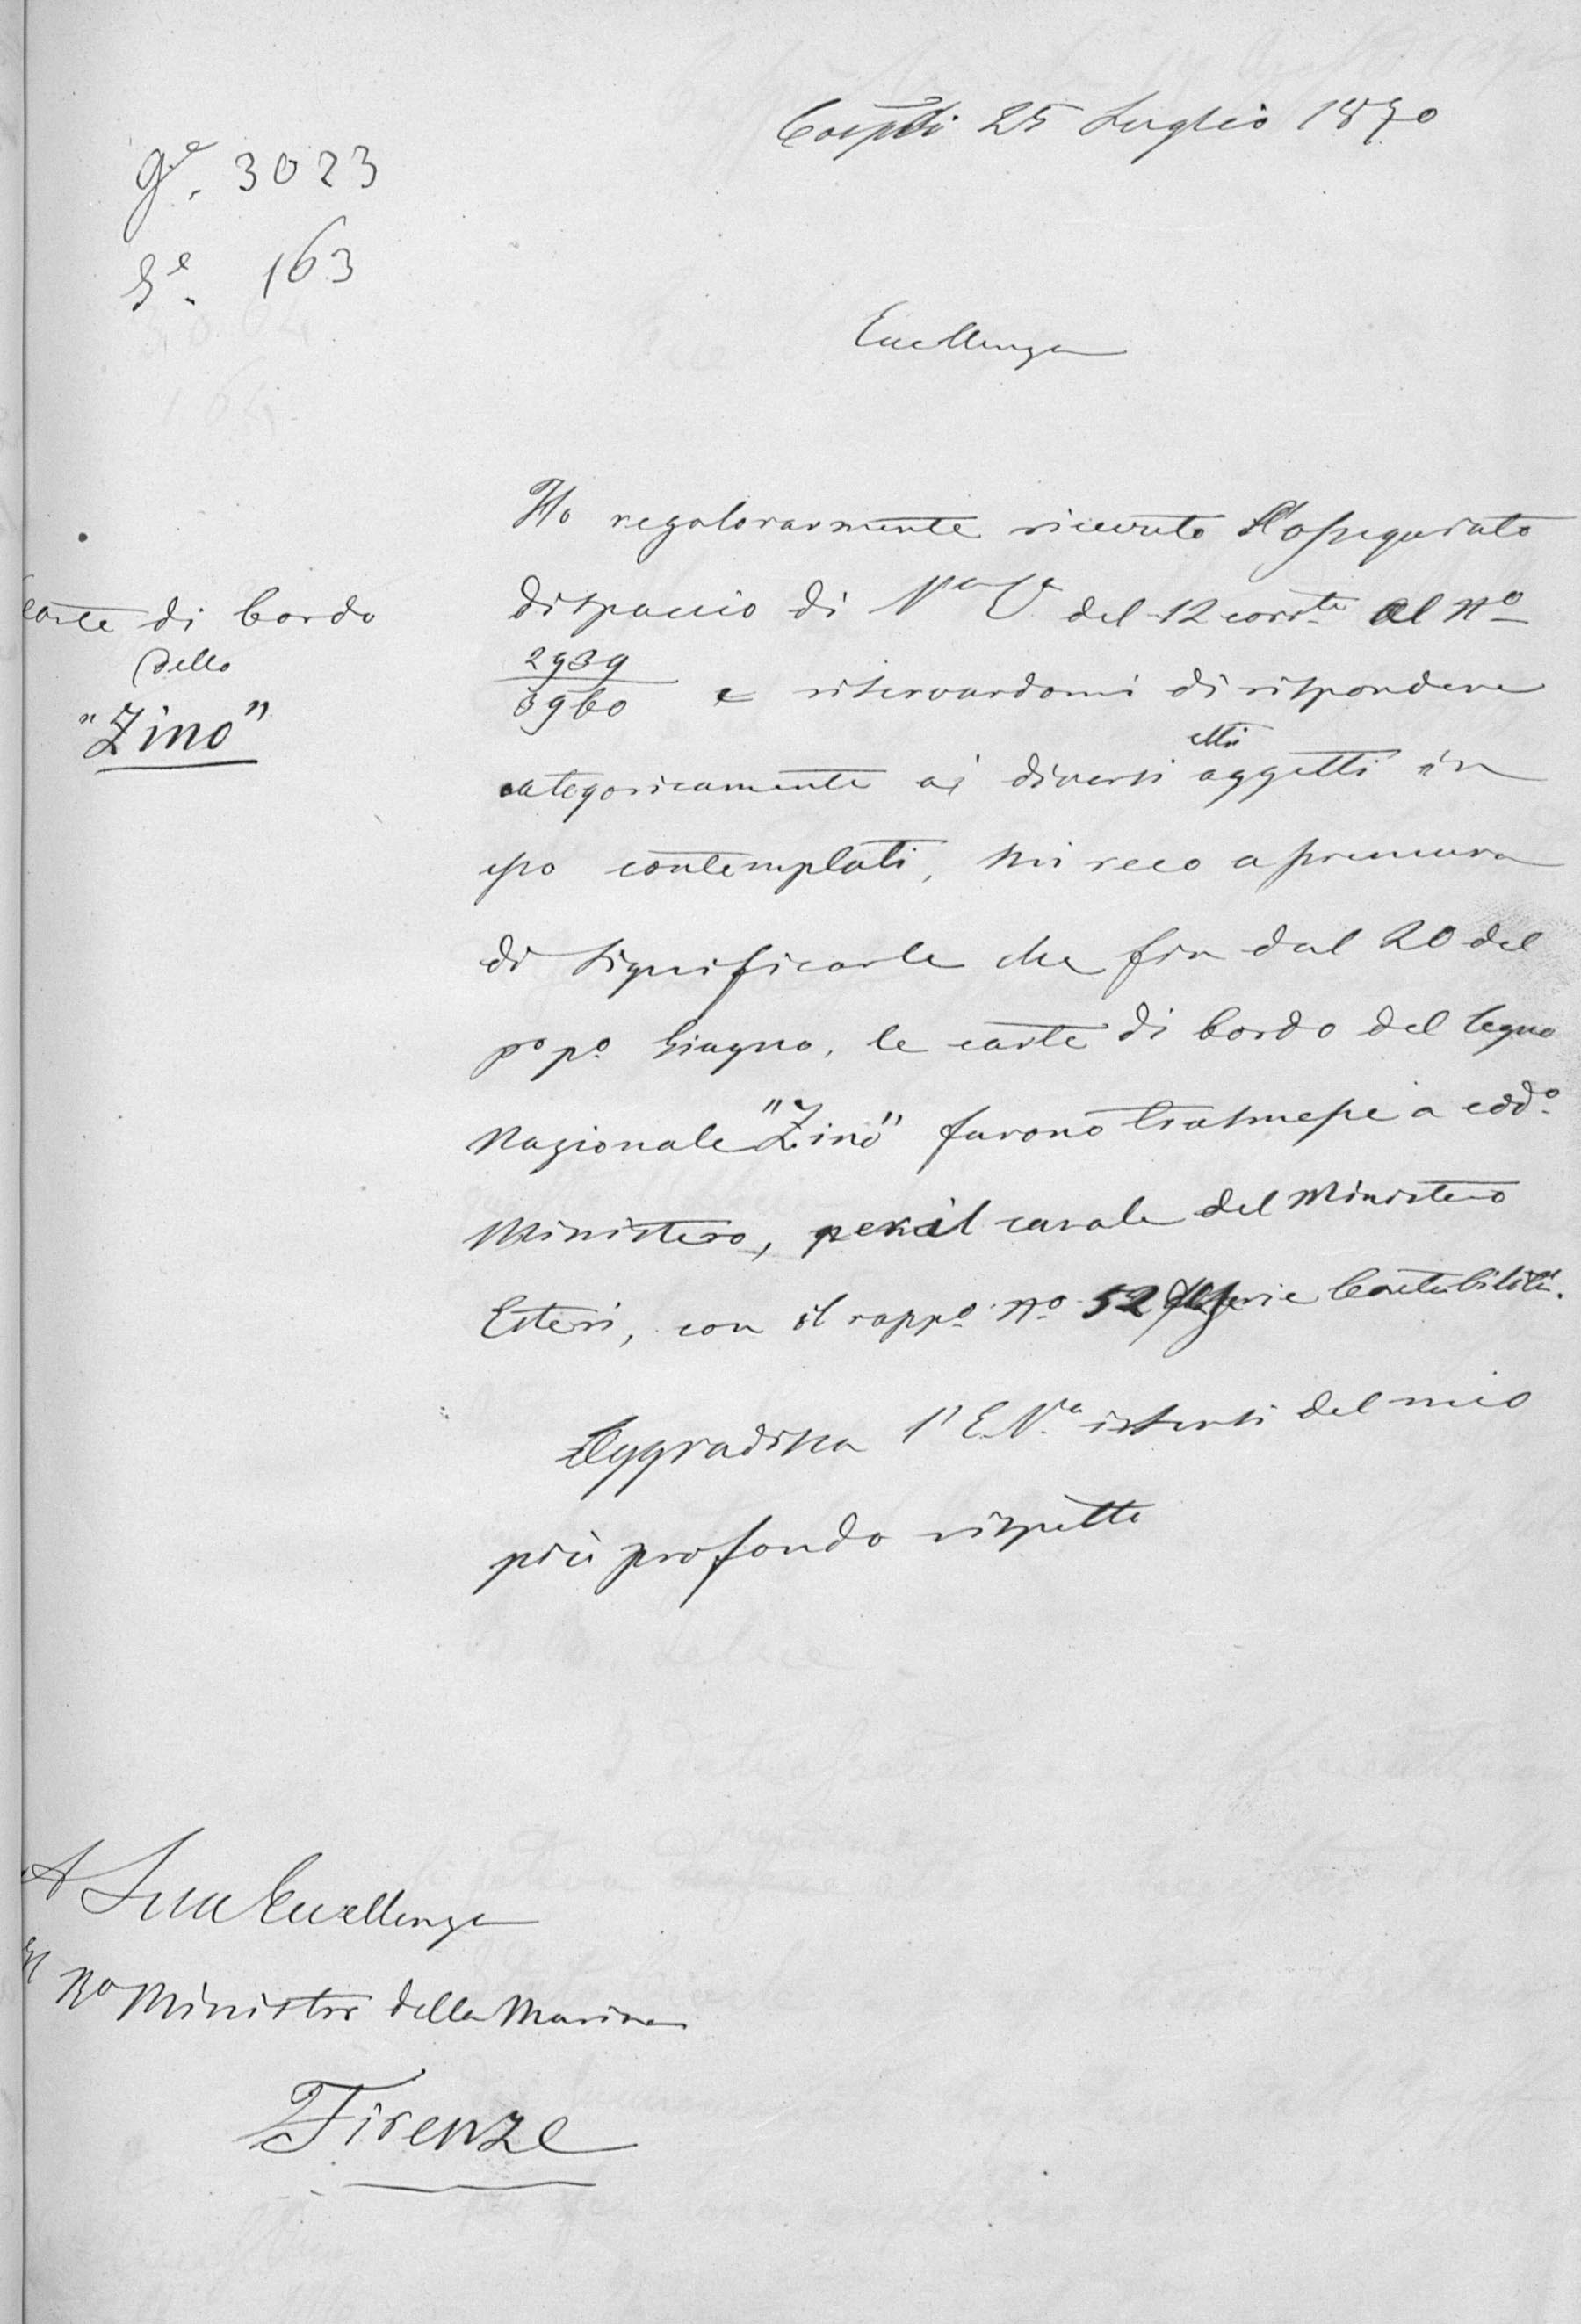 25 Luglio 1870
G.e 3023
S.e 163
Eccellenza
Ho regolarmente ricevuto l'ossequiato
Carte di bordo
dello
"Zino"
dispaccio di V.a E. del 12 corr.te al N.o
2939
3960 e riservandomi di rispondere
categoricamente ai diversi oggetti in
esso contemplati, mi reco a premura
di significarle che fin dal 20 del
p.o p.o Giugno, le carte di bordo del legno
Nazionale "Zino" furono trasmesse a codd.o
Ministero, per il canale del Ministero
Esteri, con il rapp.o N.o 52 Serie Contabilità.
Aggradisca l'E.V.a i sensi del mio
più profondo rispetto
A Sua Eccellenza
Il R.o Ministro della Marina
Firenze